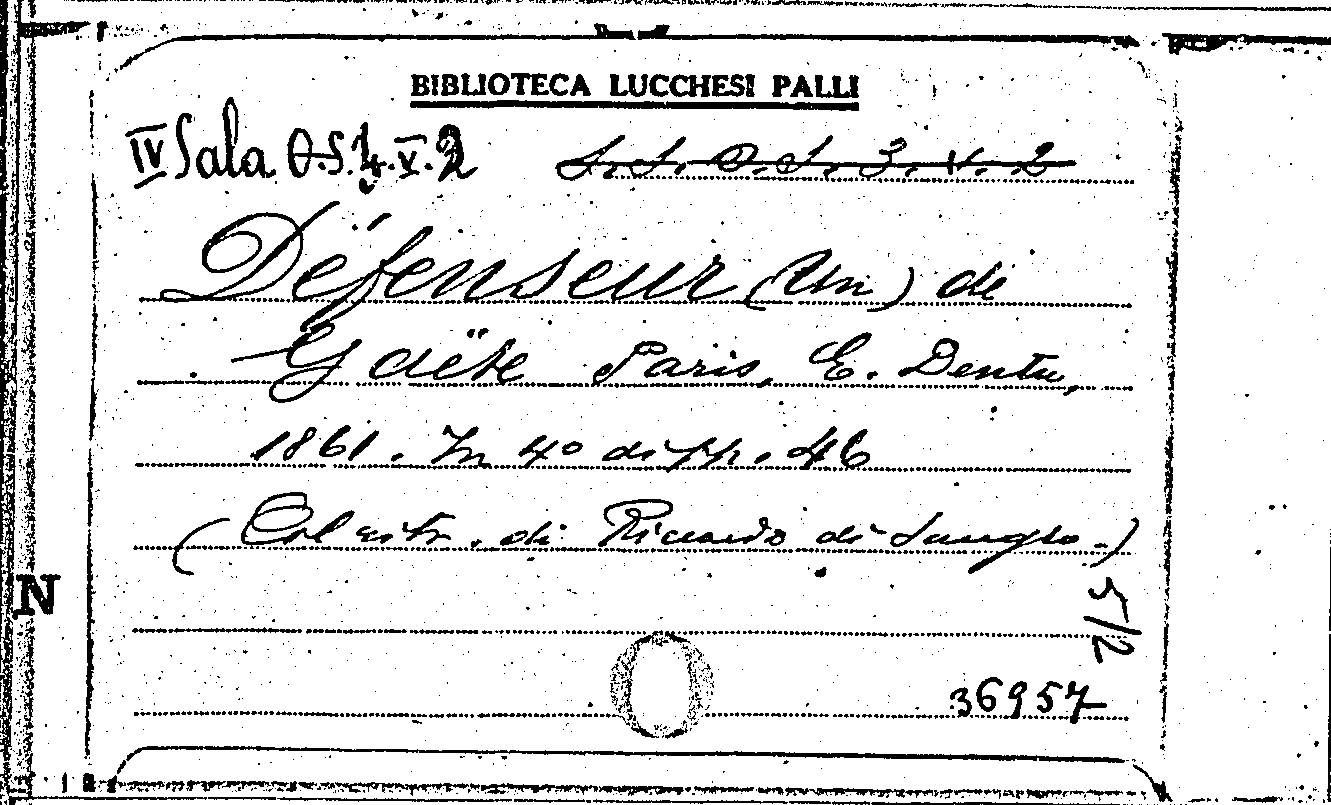 BIBLIOTECA LUCCHESI PALLI
IV Sala O.S. 4. X. 2 S.S. O.S. 3. V. 2
Défenseur (Un) de
Gaëte Paris, E. Dentu,
1861. In 4° di pp. 46
(Col ritr. di Riccardo di Sangro.)
5/2
N
36957